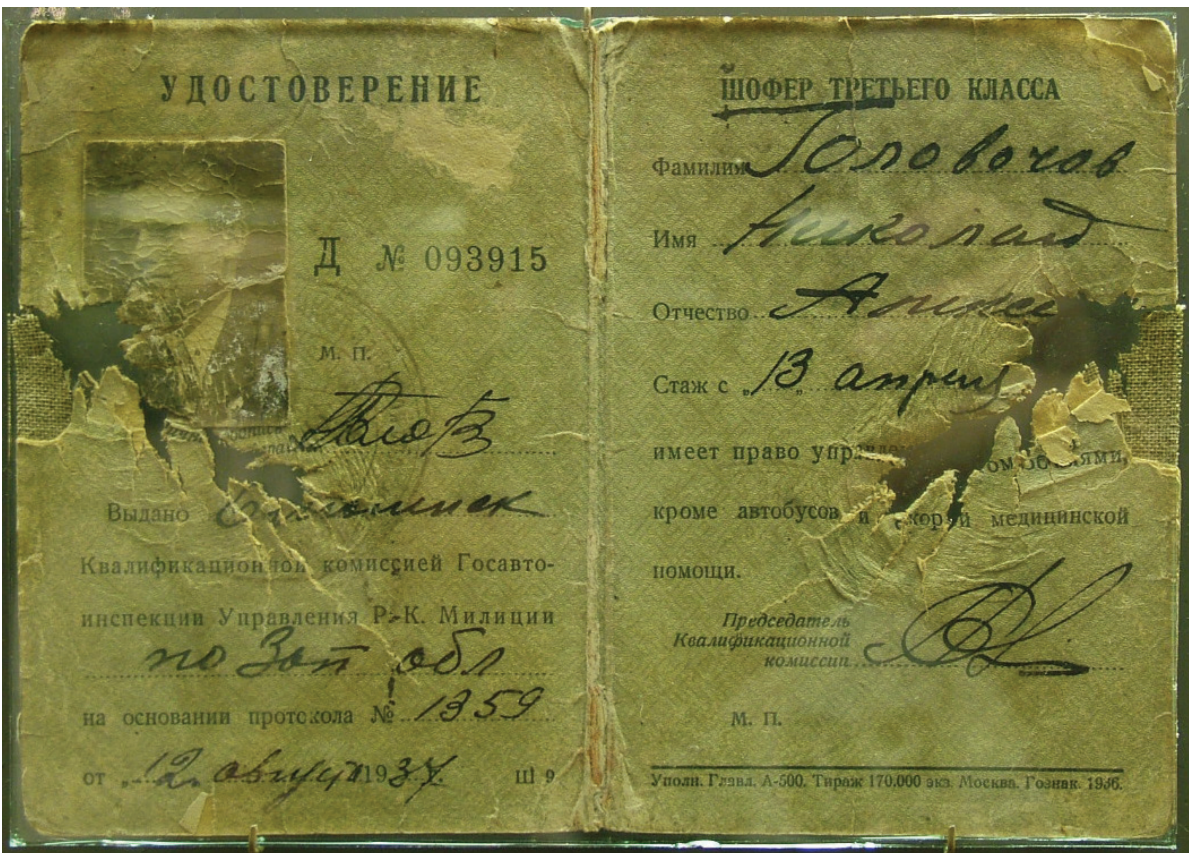 УДОСТОВЕРЕНИЕ
Д № 093915
М. П.
Выдано
Квалификационной комиссией Госавто-
инспекции Управления Р.-К. Милиции
по Зап обл
на основании протокола № 1359
от „12„ август 1937 г. Ш 9
ШОФЕР ТРЕТЬЕГО КЛАССА
Фамилия Головочов
Имя Николай
Отчество
Стаж с „13„ апреля
имеет право
кроме автобусов и скорой медицинской
помощи.
Председатель
Квалификационной
комиссии
М. П.
Уполн. Главл. А-500. Тираж 170.000 экз. Москва. Гознак. 1936.